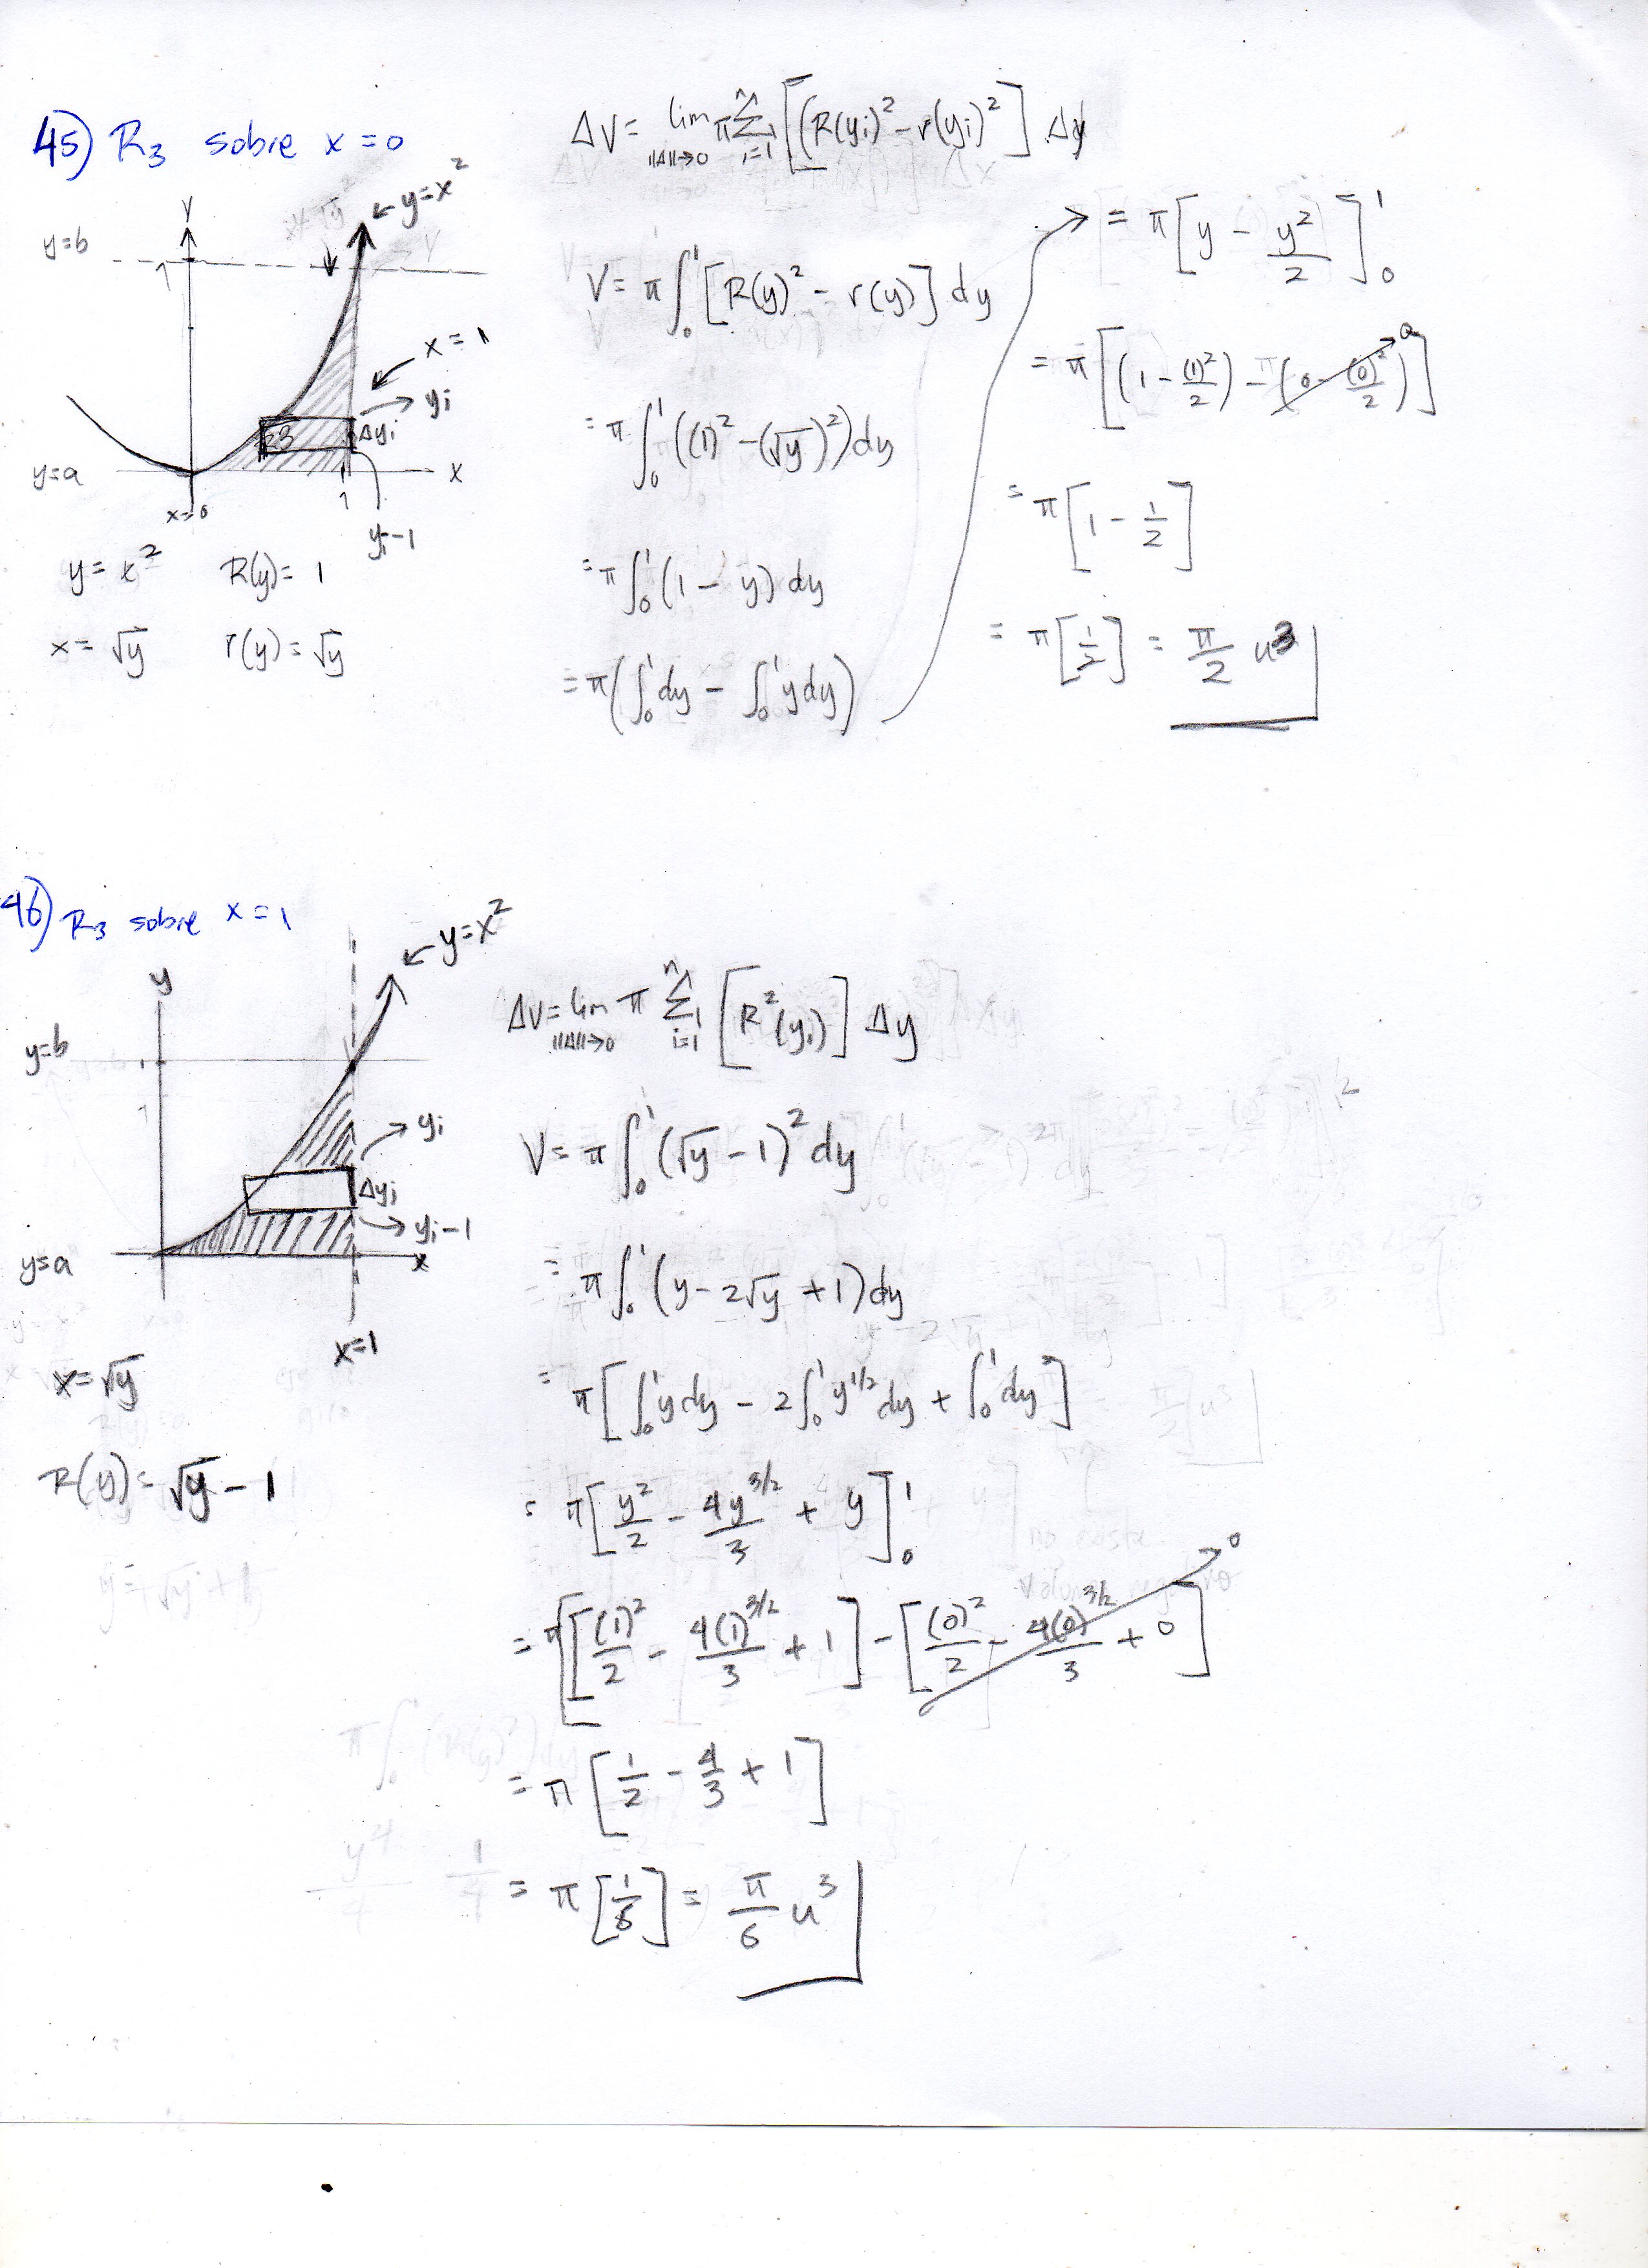 45) R₃ sobre x = 0
y=b
1
y
← y=x²
x = 1
yi
R3
Δyi
y=a
x
x=0
1
yi-1
y = x²    R(y) = 1
x = √y    r(y) = √y
ΔV = lim ||Δ||→0 π Σ i=1 n [(R(yi)² - r(yi)²] Δy
V = π ∫₀¹ [R(y)² - r(y)] dy
= π ∫₀¹ ((1)² - (√y)²) dy
= π ∫₀¹ (1 - y) dy
= π (∫₀¹ dy - ∫₀¹ y dy)
= π [y - y²/2]₀¹
= π [(1 - (1)²/2) - (0 - (0)²/2)] 0
= π [1 - 1/2]
= π [1/2] = π/2 u³
46) R₃ sobre x = 1
y
← y=x²
y=b
1
yi
Δyi
yi-1
y=a
x
x=1
x = √y
R(y) = √y - 1
ΔV = lim ||Δ||→0 π Σ i=1 n [R²(yi)] Δy
V = π ∫₀¹ (√y - 1)² dy
= π ∫₀¹ (y - 2√y + 1) dy
= π [∫₀¹ y dy - 2∫₀¹ y^1/2 dy + ∫₀¹ dy]
= π [y²/2 - 4y^3/2/3 + y]₀¹
= π [[(1)²/2 - 4(1)^3/2/3 + 1] - [(0)²/2 - 4(0)^3/2/3 + 0] 0
= π [1/2 - 4/3 + 1]
= π [1/6] = π/6 u³